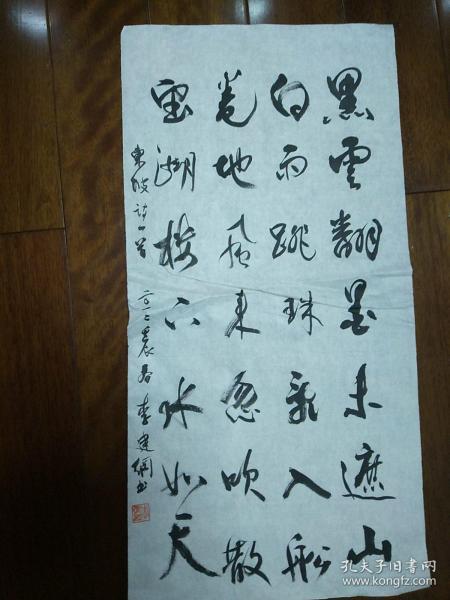 黑雲翻墨未遮山
白雨跳珠亂入船
卷地風来忽吹散
望湖楼下水如天
東坡詩一首 二〇一二春 李建綱书
孔夫子旧书网
www.kongfz.com